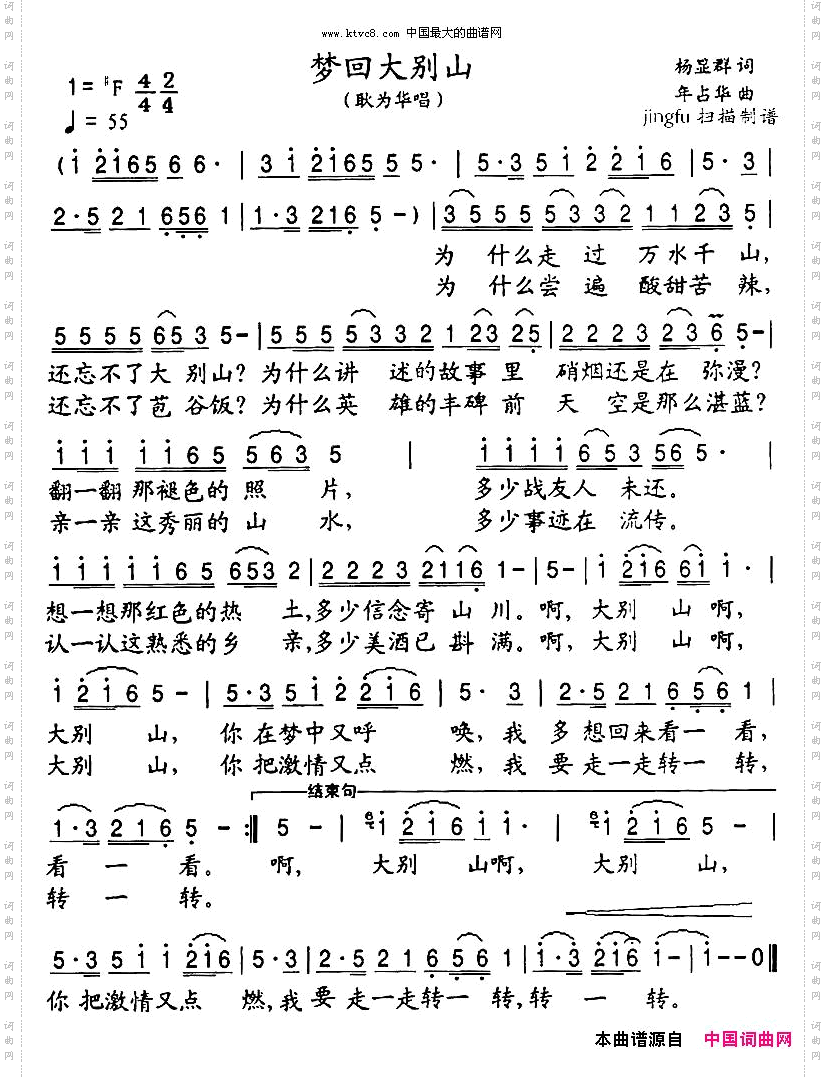 www.ktvc8.com 中国最大的曲谱网
梦回大别山
(耿为华唱)
1=♯F 4/4 2/4
♩=55
杨显群 词
年占华 曲
jingfu 扫描制谱
(i 2i65 6 6· | 3 i 2i65 5· | 5·3 5 i 2 2i6 | 5·3 |
2·5 2 1 656 1 | 1·3 216 5 -) | 3 5 5 5 5 5 3 2 1 1 2 3 5 |
为 什么走 过 万水千 山,
为 什么尝 遍 酸甜苦 辣,
5 5 5 5 6 5 3 5 - | 5 5 5 5 5 3 3 2 1 2 3 2 5 | 2 2 2 3 2 3 6 5 - |
还忘不了大 别山?为什么讲 述的故事 里 硝烟还是在 弥漫?
还忘不了芭 谷饭?为什么英 雄的丰碑 前 天 空是那么湛蓝?
i i i i i 6 5 5 6 3 5 | i i i i 6 5 3 5 6 5 2· |
翻一翻 那褪色的 照 片, 多少战友人 未还。
亲一亲 这秀丽的 山 水, 多少事迹在 流传。
i i i i i 6 5 6 5 3 2 | 2 2 2 3 2 1 1 6 1 - | 5 - | i 2 i 6 6 i i· |
想一想那红色的热 土,多少信念寄 山 川。啊,大别 山啊,
认一认这熟悉的乡 亲,多少美酒已 斟 满。啊,大别 山啊,
i 2 i 6 5 - | 5·3 5 i 2 2 i 6 | 5·3 | 2·5 2 1 6 5 6 1 |
大别 山, 你 在梦中又呼 唤,我 多 想回来看一 看,
大别 山, 你 把激情又点 燃,我 要 走一走转一 转,
结束句
1·3 2 1 6 5 - :‖ 5 - | i 2 i 6 i i· | i 2 i 6 5 - |
看 一 看。 啊, 大别 山啊, 大别 山,
转 一 转。
5·3 5 i i 2i6 | 5·3 | 2·5 2 1 6 5 6 1 | i·3 2 i 6 i - | i - - 0 ‖
你 把激情又点 燃,我 要 走一走转一 转,转 一 转。
本曲谱源自 中国词曲网
词曲网